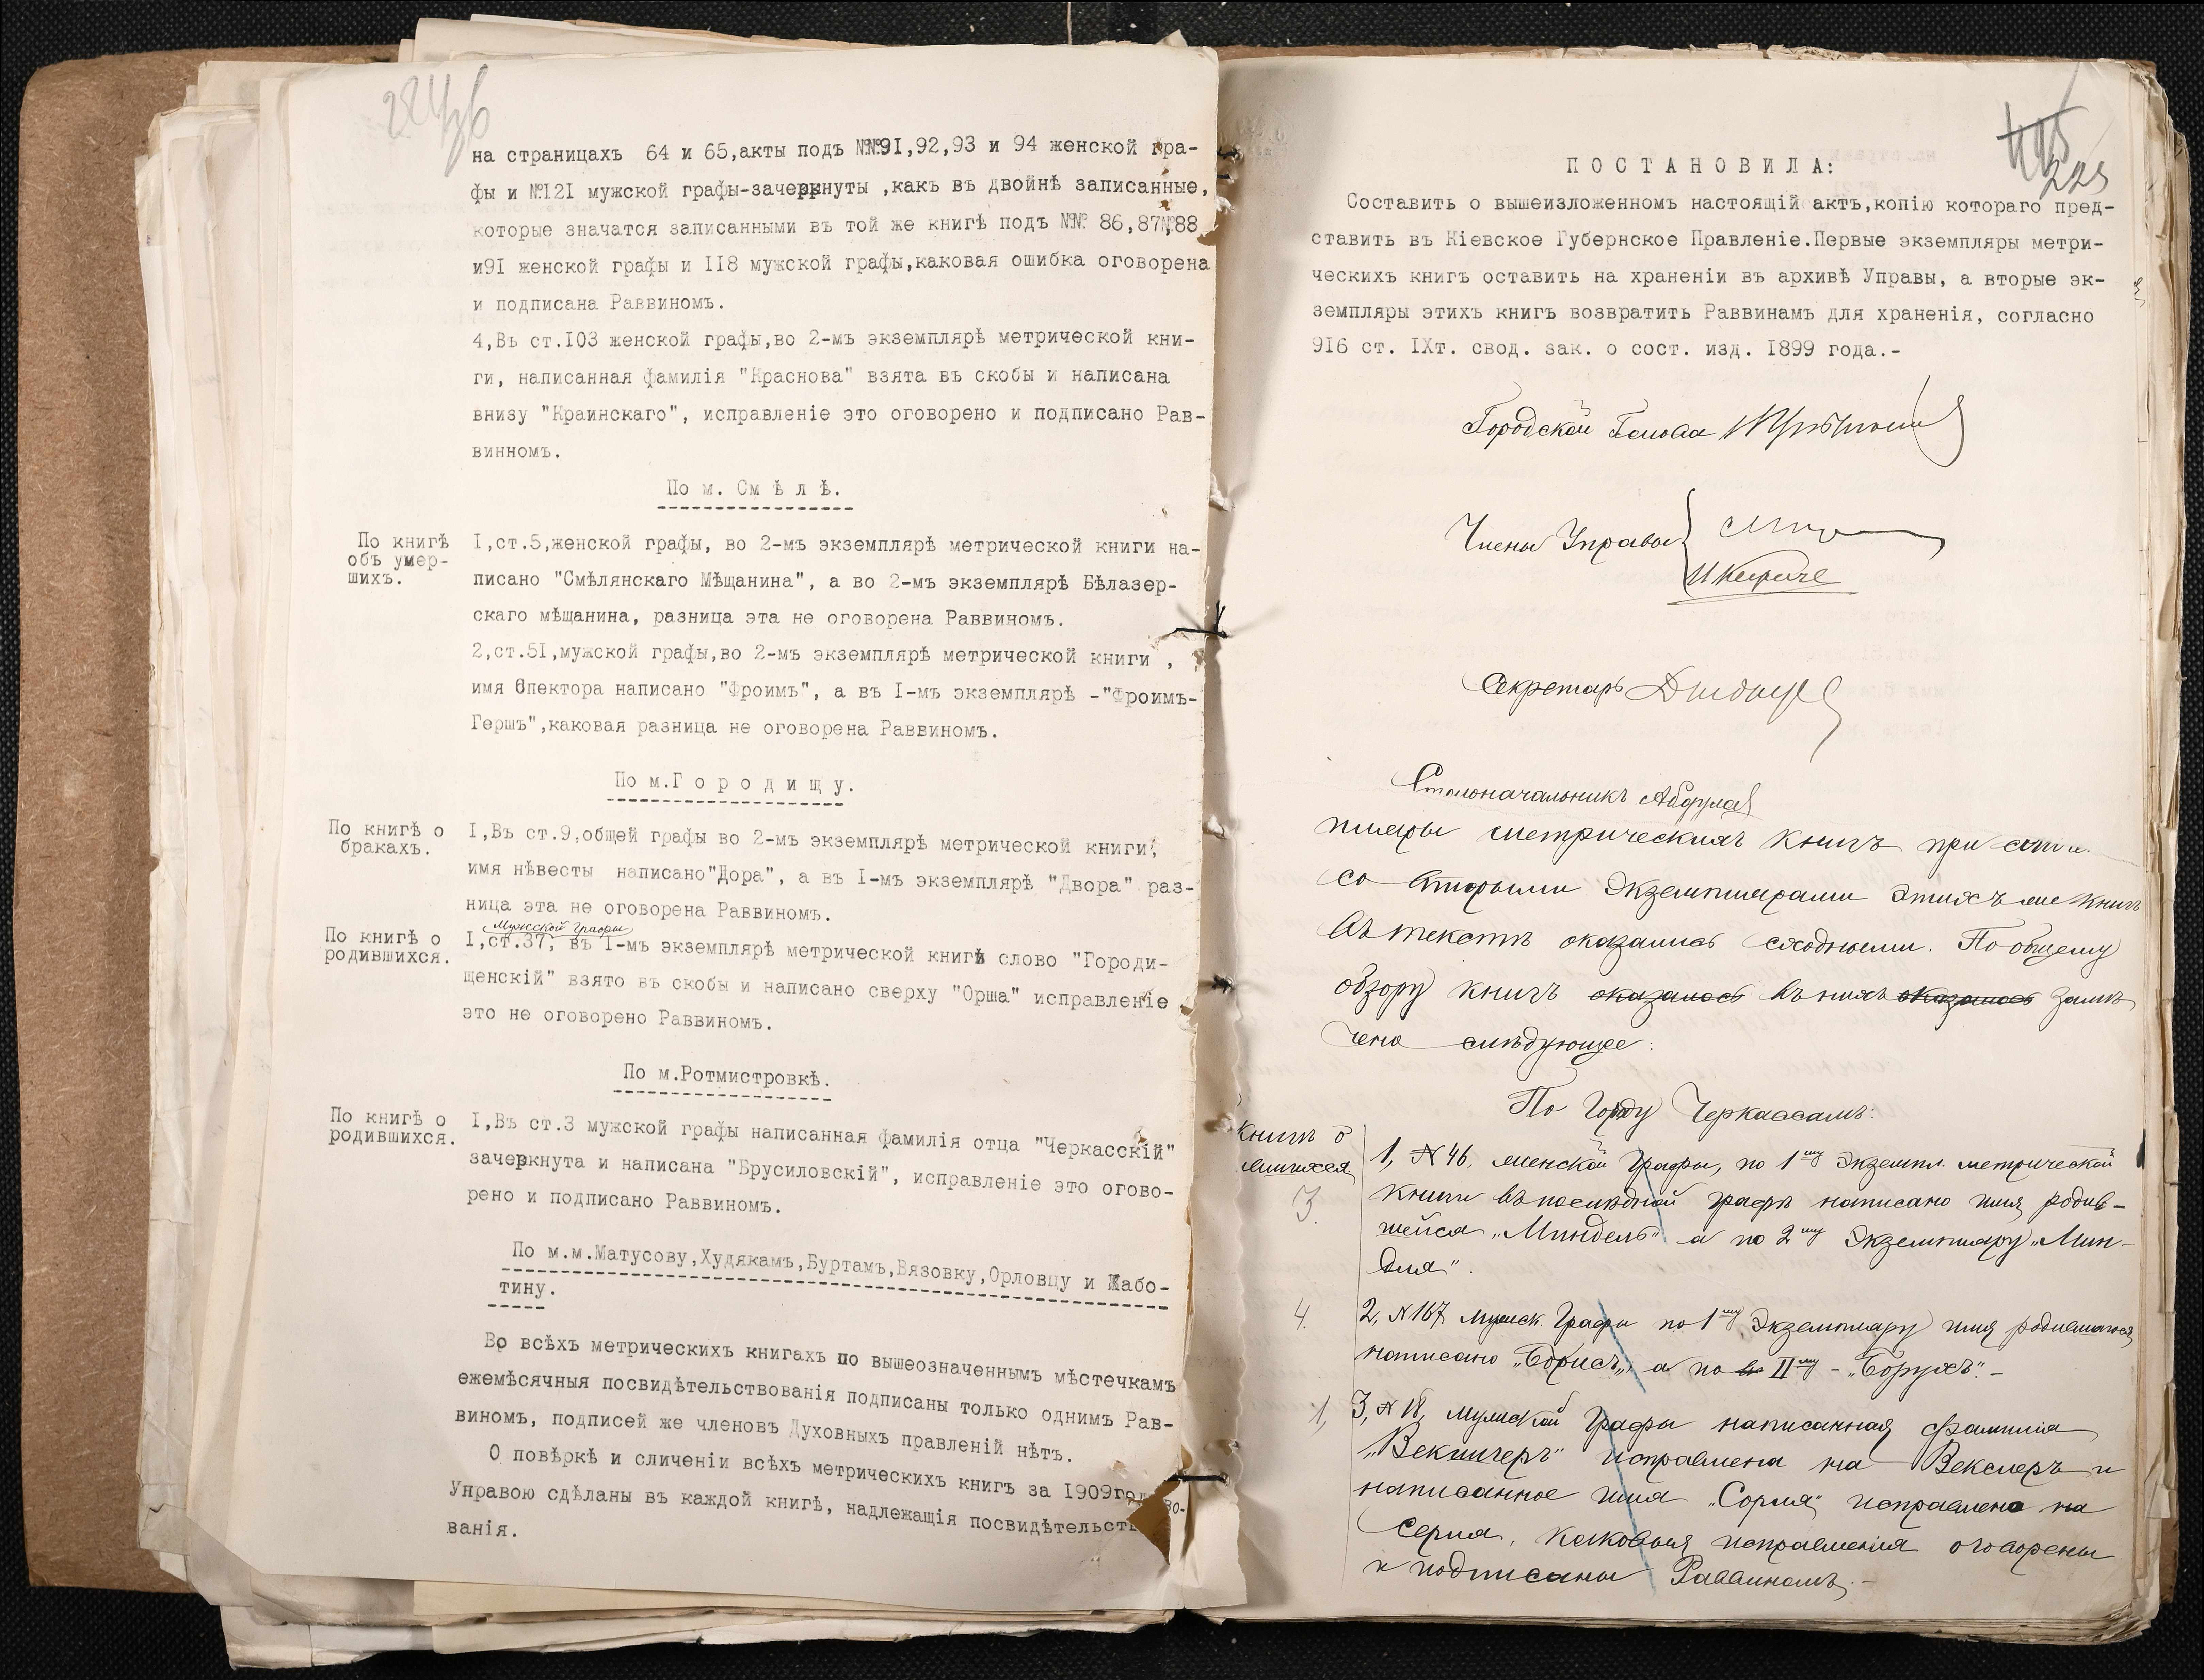 на страницахъ 64 и 65,акты подъ №№91,92,93 и 94 женской гра-
фы и №121 мужской графы-зачеркнуты ,какъ въ двойнѣ записанные,
которые значатся записанными въ той же книгѣ подъ №№ 86,87,№88
и91 женской графы и 118 мужской графы,каковая ошибка оговорена
и подписана Раввиномъ.
4,Въ ст.103 женской графы,во 2-мъ экземплярѣ метрической кни-
ги, написанная фамилія "Краснова" взята въ скобы и написана
внизу "Краинскаго", исправленіе это оговорено и подписано Рав-
винномъ.
По м. С м ѣ л ѣ.
По книгѣ
объ умер-
шихъ.
I,ст.5,женской графы, во 2-мъ экземплярѣ метрической книги на-
писано "Смѣлянскаго Мѣщанина", а во 2-мъ экземплярѣ Бѣлазер-
скаго мѣщанина, разница эта не оговорена Раввиномъ.
2,ст.51,мужской графы,во 2-мъ экземплярѣ метрической книги ,
имя Спектора написано "Фроимъ", а въ I-мъ экземплярѣ -"Фроимъ-
Гершъ",каковая разница не оговорена Раввиномъ.
По м.Г о р о д и щ у.
По книгѣ о
бракахъ.
I,Въ ст.9,общей графы во 2-мъ экземплярѣ метрической книги,
имя нѣвесты написано"Дора", а въ I-мъ экземплярѣ "Двора" раз-
ница эта не оговорена Раввиномъ.
Мужской графы
По книгѣ о
родившихся.
I,ст.37, въ I-мъ экземплярѣ метрической книги слово "Городи-
щенскій" взято въ скобы и написано сверху "Орша" исправленіе
это не оговорено Раввиномъ.
По м.Ротмистровкѣ.
По книгѣ о
родившихся.
I,Въ ст.3 мужской графы написанная фамилія отца "Черкасскій"
зачеркнута и написана "Брусиловскій", исправленіе это огово-
рено и подписано Раввиномъ.
По м.м.Матусову,Худякамъ,Буртамъ,Вязовку,Орловцу и Жабо-
тину.
Во всѣхъ метрическихъ книгахъ по вышеозначеннымъ мѣстечкамъ
ежемѣсячныя посвидѣтельствованія подписаны только однимъ Рав-
виномъ, подписей же членовъ Духовныхъ правленій нѣтъ.
О повѣркѣ и сличеніи всѣхъ метрическихъ книгъ за 1909год
Управою сдѣланы въ каждой книгѣ, надлежащія посвидѣтельство-
ванія.
225
П О С Т А Н О В И Л А:
Составить о вышеизложенномъ настоящій актъ,копію котораго пред-
ставить въ Кіевское Губернское Правленіе.Первые экземпляры метри-
ческихъ книгъ оставить на храненіи въ архивѣ Управы, а вторые эк-
земпляры этихъ книгъ возвратить Раввинамъ для храненія, согласно
916 ст. IХт. свод. зак. о сост. изд. 1899 года.-
Городской Голова
Члены Управы
Секретарь
Столоначальникъ
пляры метрическихъ книгъ при
со вторыми экземплярами этихъ же книгъ
въ текстѣ оказались сходными. По общему
обзору книгъ оказалось въ нихъ оказалось замѣ
чено слѣдующее:
По Городу Черкассамъ:
книгѣ о
1, №46, женской графы, по 1му экземпл. метрической
3.
книги въ послѣдней графѣ написано имя родив-
шейся „Миндель" а по 2му экземпляру „Мин-
для".
4.
2, №167 Мужск. графы по 1му экземпляру имя родившагося
написано „Борисъ", а по въ IIму - „Борухъ". -
1,
3, №18, Мужской графы написанная фамилія
„Векшчеръ" исправлена на Векслеръ и
написанное имя „Сорля" исправлено на
Серля, каковыя исправленія оговорены
и подписаны Раввиномъ. -